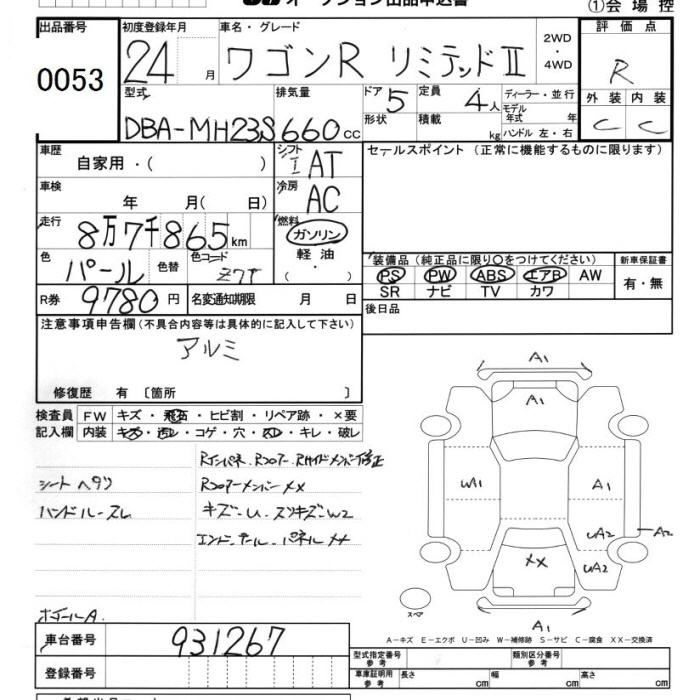 オークション出品申込書
①会場控
出品番号 初度登録年月 車名・グレード 評価点
0053 24 月 ワゴンR リミテッドⅡ 2WD・4WD R
型式 排気量 ドア 5 定員 4人 ディーラー・並行 外装 内装
DBA-MH23S 660cc 形状 積載 kg モデル年式 年 C C
ハンドル 左・右
車歴 自家用・( ) シフト I AT セールスポイント (正常に機能するものに限ります)
車検 年 月( 日) 冷房 AC
走行 8万7千865km 燃料 ガソリン
軽油
( ・ )
色 パール 色替 色コード Z7T
装備品 (純正品に限り〇をつけてください) 新車保証書
PS PW ABS エアB AW 有・無
SR ナビ TV カワ
R券 9780円 名変通知期限 月 日
後日品
注意事項申告欄 (不具合内容等は具体的に記入して下さい)
アルミ
修復歴 有 〔箇所 〕
検査員 FW キズ・飛石・ヒビ割・リペア跡・×要
記入欄 内装 キズ・汚レ・コゲ・穴・スレ・キレ・破レ
Rインパネ.Rフロアー.Rサイドメンバー修正
シートヘタリ Rフロアーメンバー××
ハンドルースレ キズーU.スリキズーW2
エンドーテール.パネル××
ホイールA.
A1
A1
W1 A1
UA2 A2
×× UA2
スペア
A1
A-キズ E-エクボ U-凹み W-補修跡 S-サビ C-腐食 XX-交換済
車台番号 931267
型式指定番号 参考 類別区分番号 参考
登録番号 車庫証明用 参考 長さ cm 幅 cm 高さ cm